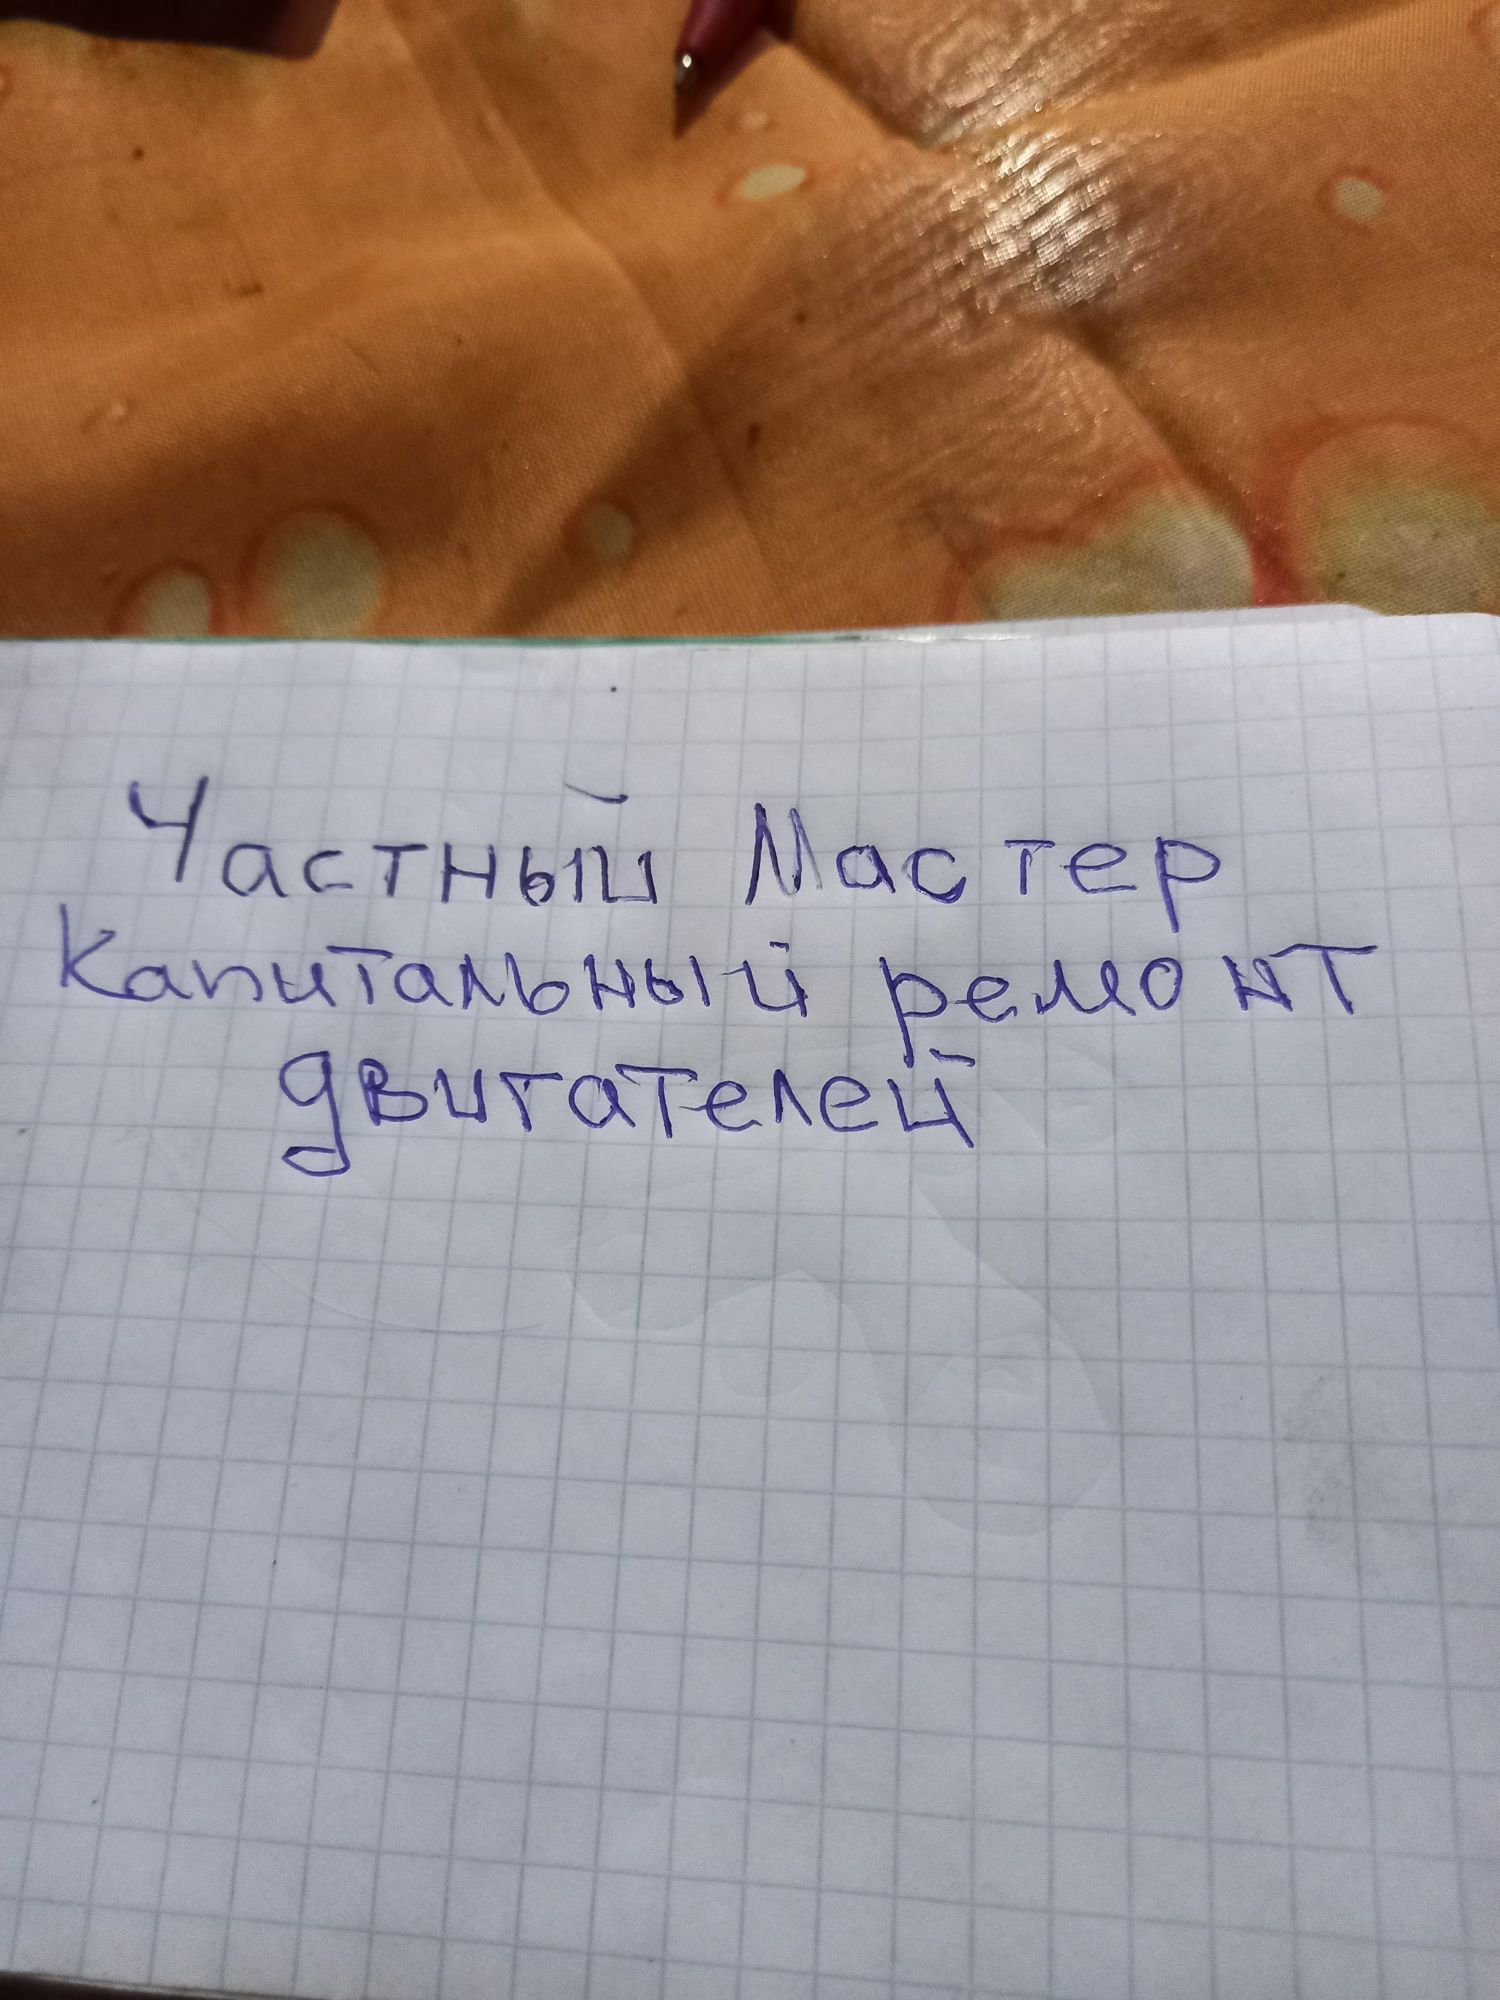 Частный Мастер
Капитальный ремонт
двигателей